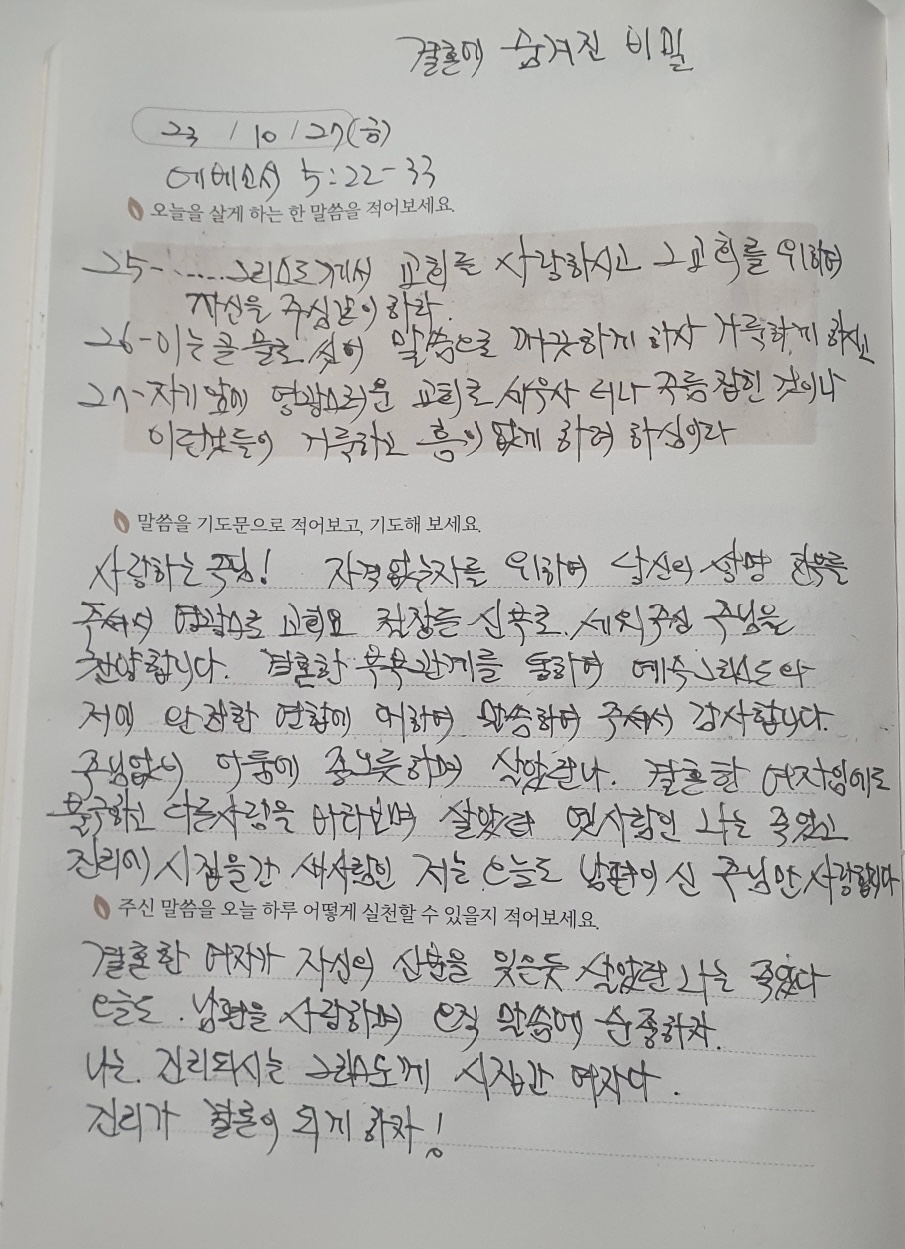 결혼에 숨겨진 비밀
23 / 10 / 27(금)
에베소서 5:22-33
오늘을 살게 하는 한 말씀을 적어보세요.
25-......그리스도께서 교회를 사랑하시고 그 교회를 위하여
자신을 주심같이 하라.
26-이는 곧 물로 씻어 말씀으로 깨끗하게 하사 거룩하게 하시고
27-자기 앞에 영광스러운 교회로 세우사 티나 주름 잡힌 것이나
이런것들이 거룩하고 흠이 없게 하려 하심이라
말씀을 기도문으로 적어보고, 기도해 보세요.
사랑하는 주님! 자격없는자를 위하여 당신의 생명 전부를
주셔서 영광스로 교회요 신부로 세워주신 주님을
찬양합니다. 결혼한 부부관계를 통하여 예수그리스도와
저의 완전한 연합에 대하여 말씀하여 주셔서 감사합니다.
주님없이 아룸에 살았던나. 결혼한 여자임에도
불구하고 다른사람을 바라보며 살았던 옛사람인 나는 죽었고
진리에 시집을간 새사람인 저는 오늘도 남편이 신 주님만 사랑합니다
주신 말씀을 오늘 하루 어떻게 실천할 수 있을지 적어보세요.
결혼한 여자가 자신의 신분을 잊은듯 살았던 나는 죽었다
오늘도. 남편을 사랑하며 오직 말씀에 순종하자.
나는. 진리되시는 그리스도께 시집간 여자다.
진리가 결론이 되게 하자!